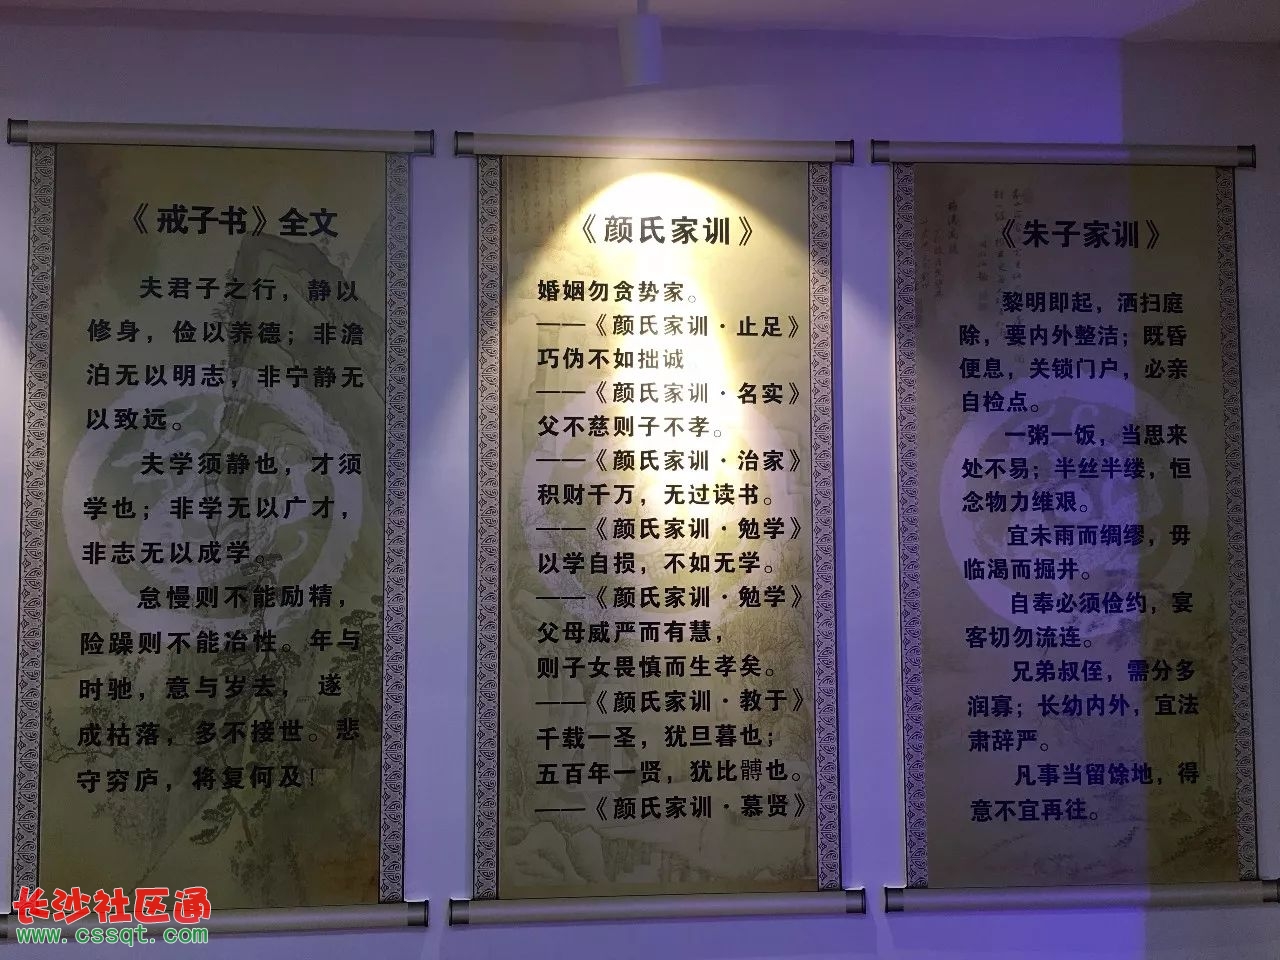 《戒子书》全文
夫君子之行，静以
修身，俭以养德；非澹
泊无以明志，非宁静无
以致远。
夫学须静也，才须
学也；非学无以广才，
非志无以成学。
怠慢则不能励精，
险躁则不能冶性。年与
时驰，意与岁去，遂
成枯落，多不接世。悲
守穷庐，将复何及！
《颜氏家训》
婚姻勿贪势家。
——《颜氏家训·止足》
巧伪不如拙诚
——《颜氏家训·名实》
父不慈则子不孝。
——《颜氏家训·治家》
积财千万，无过读书。
——《颜氏家训·勉学》
以学自损，不如无学。
——《颜氏家训·勉学》
父母威严而有慧，
则子女畏慎而生孝矣。
——《颜氏家训·教于》
千载一圣，犹旦暮也；
五百年一贤，犹比髆也。
——《颜氏家训·慕贤》
《朱子家训》
黎明即起，洒扫庭
除，要内外整洁；既昏
便息，关锁门户，必亲
自检点。
一粥一饭，当思来
处不易；半丝半缕，恒
念物力维艰。
宜未雨而绸缪，毋
临渴而掘井。
自奉必须俭约，宴
客切勿流连。
兄弟叔侄，需分多
润寡；长幼内外，宜法
肃辞严。
凡事当留馀地，得
意不宜再往。
长沙社区通
www.cssqt.com